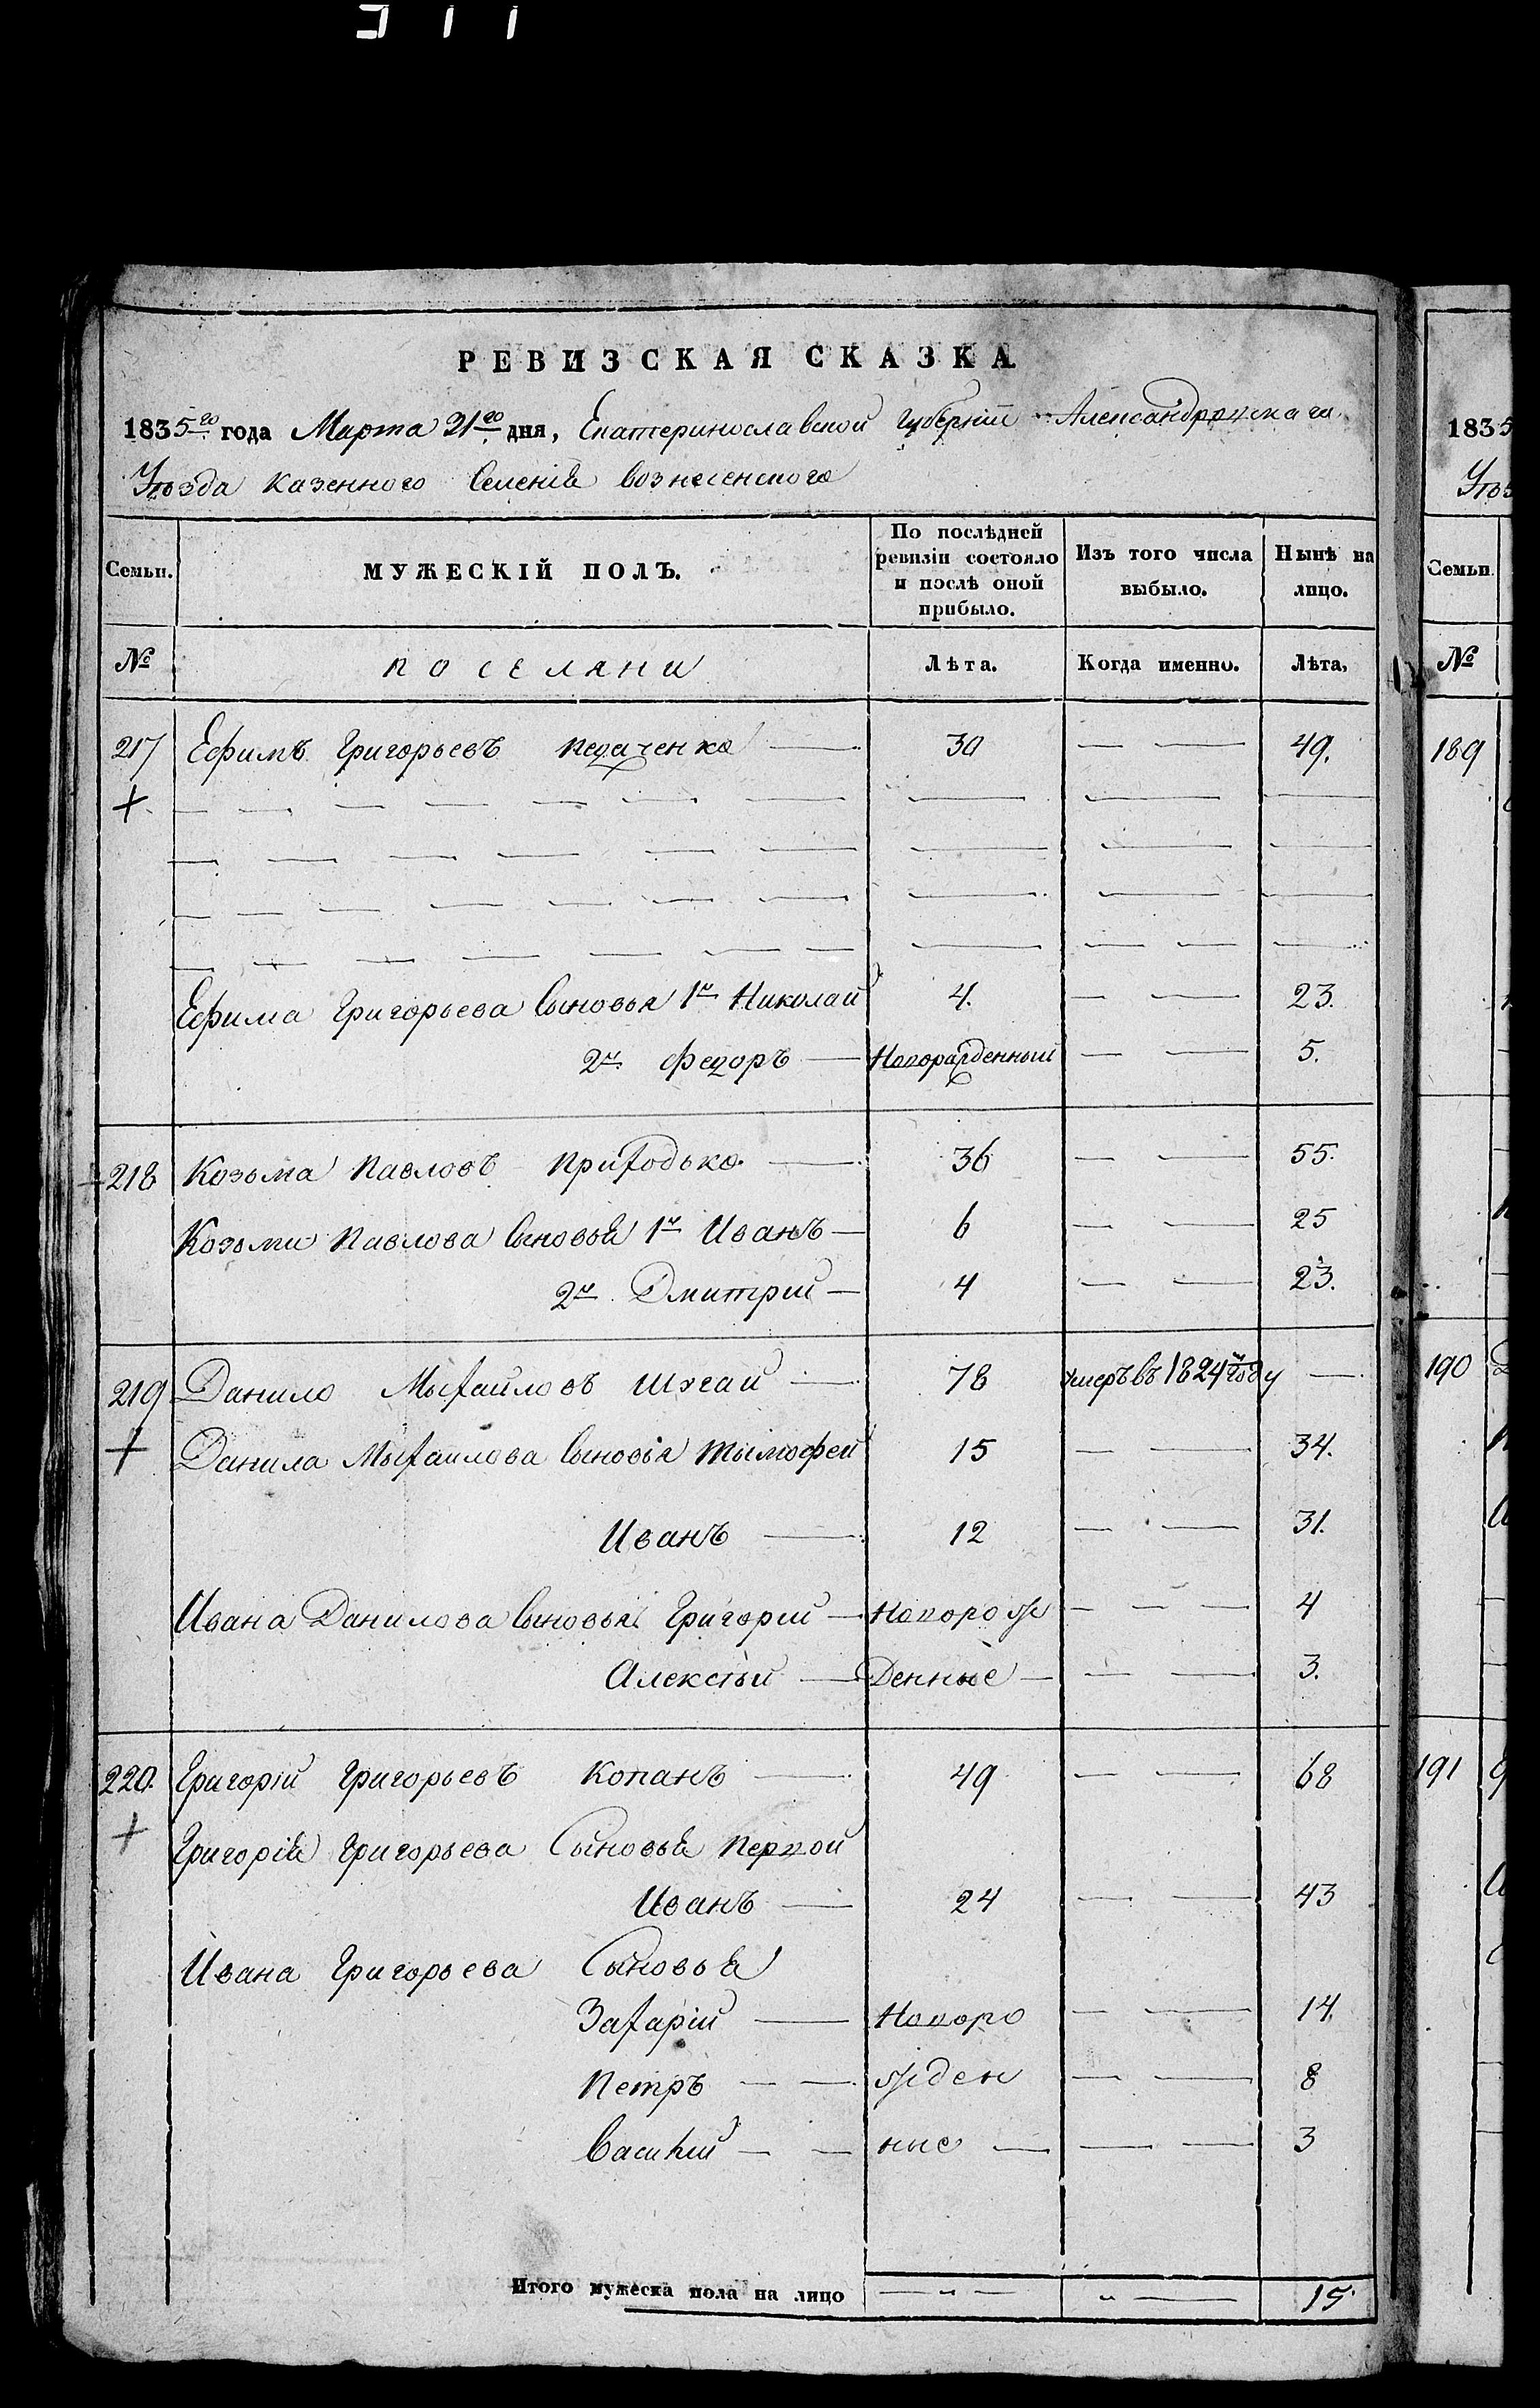 РЕВИЗСКАЯ СКАЗКА
1835го года Марта 21го дня, Екатеринославской Губерніи Александровскаго
Уѣзда казенного Селенія вознесенского
Семьи. МУЖЕСКІЙ ПОЛЪ. По послѣдней ревизіи состояло и послѣ оной прибыло. Изъ того числа выбыло. Нынѣ на лицо.
№ поселяни Лѣта. Когда именно. Лѣта.
217 Ефимъ Григорьевъ Педаченко 30 — — 49.
Ефима Григорьева Сыновья 1й Николай 4. — — 23.
2й Федоръ — Новорожденный — — 5.
218 Козьма Павловъ Приходько — 36 — — 55.
Козьми Павлова Сыновья 1й Иванъ — 6 — — 25
2й Дмитрий — 4 — — 23.
219 Данило Мыхайловъ — 78 умеръ въ 1824м году —
Данила Мыхаилова Сыновія Тымофей 15 — — 34.
Иванъ — 12 — — 31.
Ивана Данилова Сыновья Григорий — Новорож — — — 4
Алексѣй — Денные — — — 3.
220. Григорій Григорьевъ Копанъ — 49 — — 68
Григорія Григорьева Сыновья Первой
Иванъ — 24 — — 43
Ивана Григорьева Сыновья
Захарій — Новоро — — 14.
Петръ — — жден — — 8
Василий — — ные — — — 3
Итого мужеска пола на лицо — — 15
1835
Уѣз
Семьи.
№
189
190
191